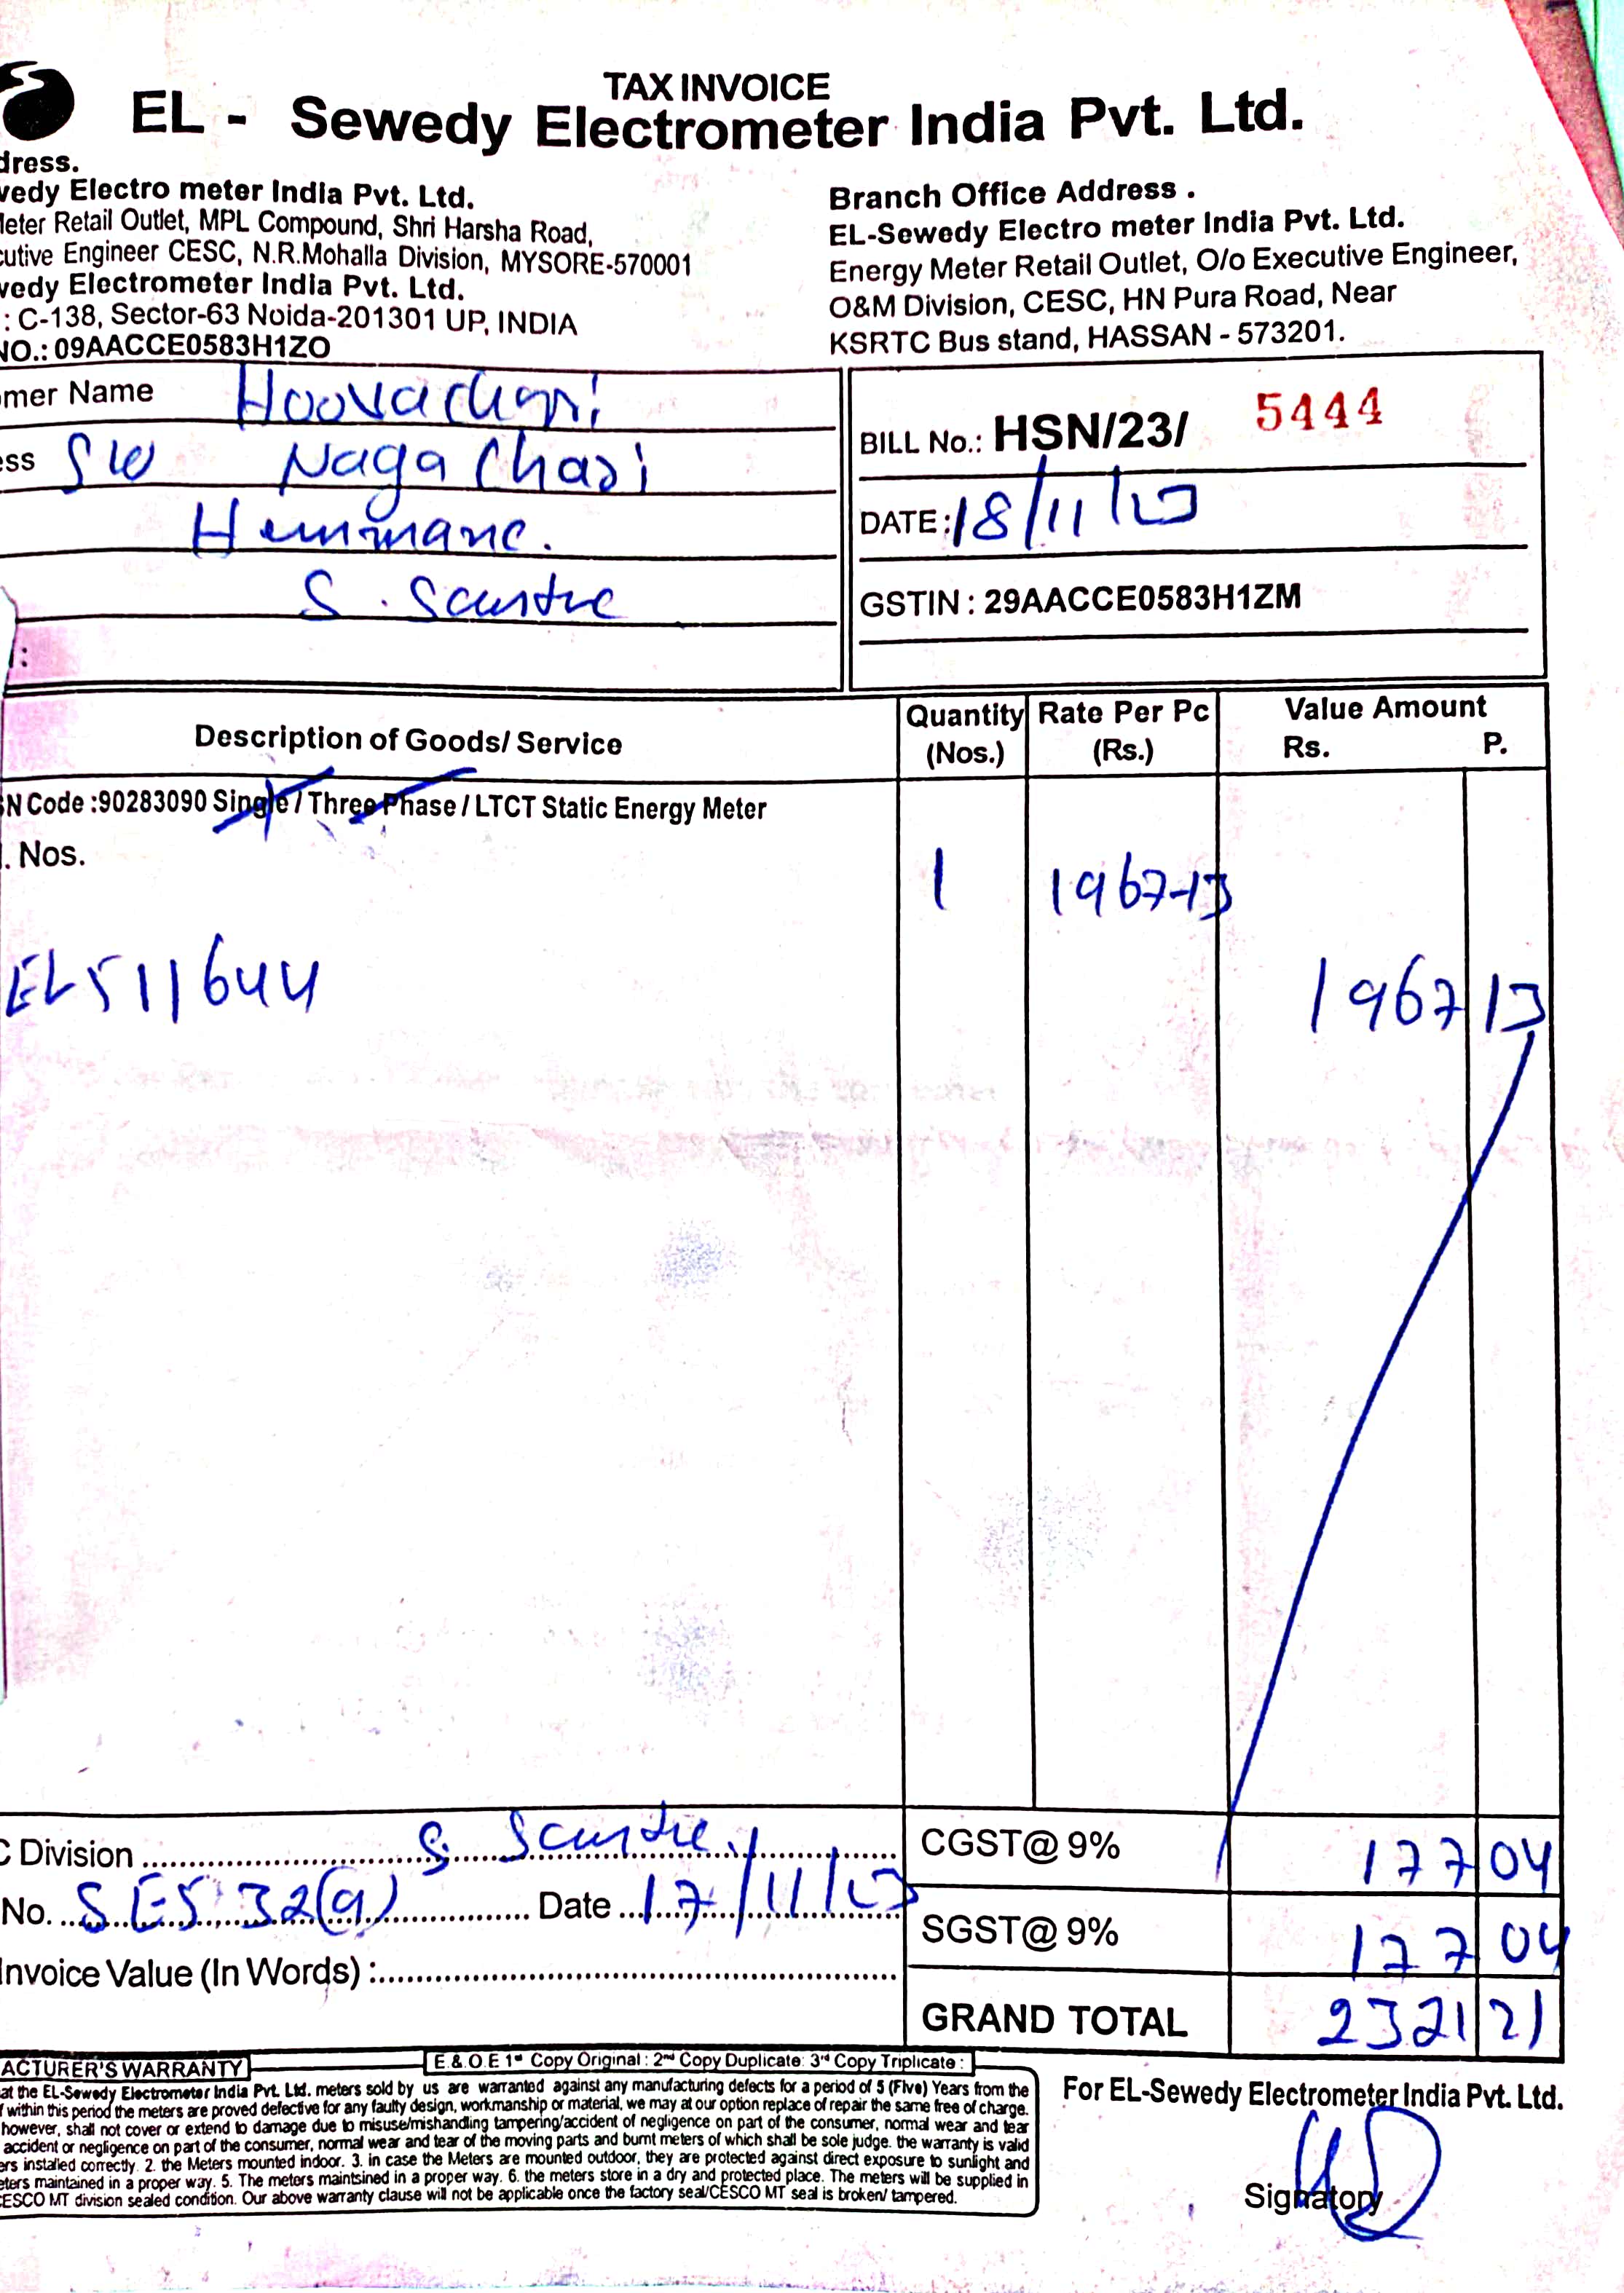 TAX INVOICE
EL - Sewedy Electrometer India Pvt. Ltd.
dress.
wedy Electro meter India Pvt. Ltd.
Meter Retail Outlet, MPL Compound, Shri Harsha Road,
cutive Engineer CESC, N.R.Mohalla Division, MYSORE-570001
wedy Electrometer India Pvt. Ltd.
: C-138, Sector-63 Noida-201301 UP, INDIA
NO.: 09AACCE0583H1ZO
Branch Office Address .
EL-Sewedy Electro meter India Pvt. Ltd.
Energy Meter Retail Outlet, O/o Executive Engineer,
O&M Division, CESC, HN Pura Road, Near
KSRTC Bus stand, HASSAN - 573201.
omer Name Hoovachari
ess S/o Nagachari
Hemmane.
S.
BILL No.: HSN/23/ 5444
DATE: 18/11/23
GSTIN : 29AACCE0583H1ZM
Description of Goods/ Service
Quantity (Nos.)
Rate Per Pc (Rs.)
Value Amount
Rs. P.
SN Code :90283090 Single / Three Phase / LTCT Static Energy Meter
. Nos.
1 1967-13
EL511644
1967 13
C Division S
No. SES 32(a) Date 17/11/23
Invoice Value (In Words) :
CGST@ 9% 177 04
SGST@ 9% 177 04
GRAND TOTAL 2321 21
ACTURER'S WARRANTY
E.& O.E 1st Copy Original : 2nd Copy Duplicate: 3rd Copy Triplicate :
at the EL-Sewedy Electrometer India Pvt. Ltd. meters sold by us are warranted against any manufacturing defects for a period of 5 (Five) Years from the
f within this period the meters are proved defective for any faulty design, workmanship or material, we may at our option replace of repair the same free of charge.
however, shall not cover or extend to damage due to misuse/mishandling tampering/accident of negligence on part of the consumer, normal wear and tear
accident or negligence on part of the consumer, normal wear and tear of the moving parts and burnt meters of which shall be sole judge. the warranty is valid
ers installed correctly. 2. the Meters mounted indoor. 3. in case the Meters are mounted outdoor, they are protected against direct exposure to sunlight and
eters maintained in a proper way. 5. The meters maintsined in a proper way. 6. the meters store in a dry and protected place. The meters will be supplied in
CESCO MT division sealed condition. Our above warranty clause will not be applicable once the factory seal/CESCO MT seal is broken/ tampered.
For EL-Sewedy Electrometer India Pvt. Ltd.
Signatory